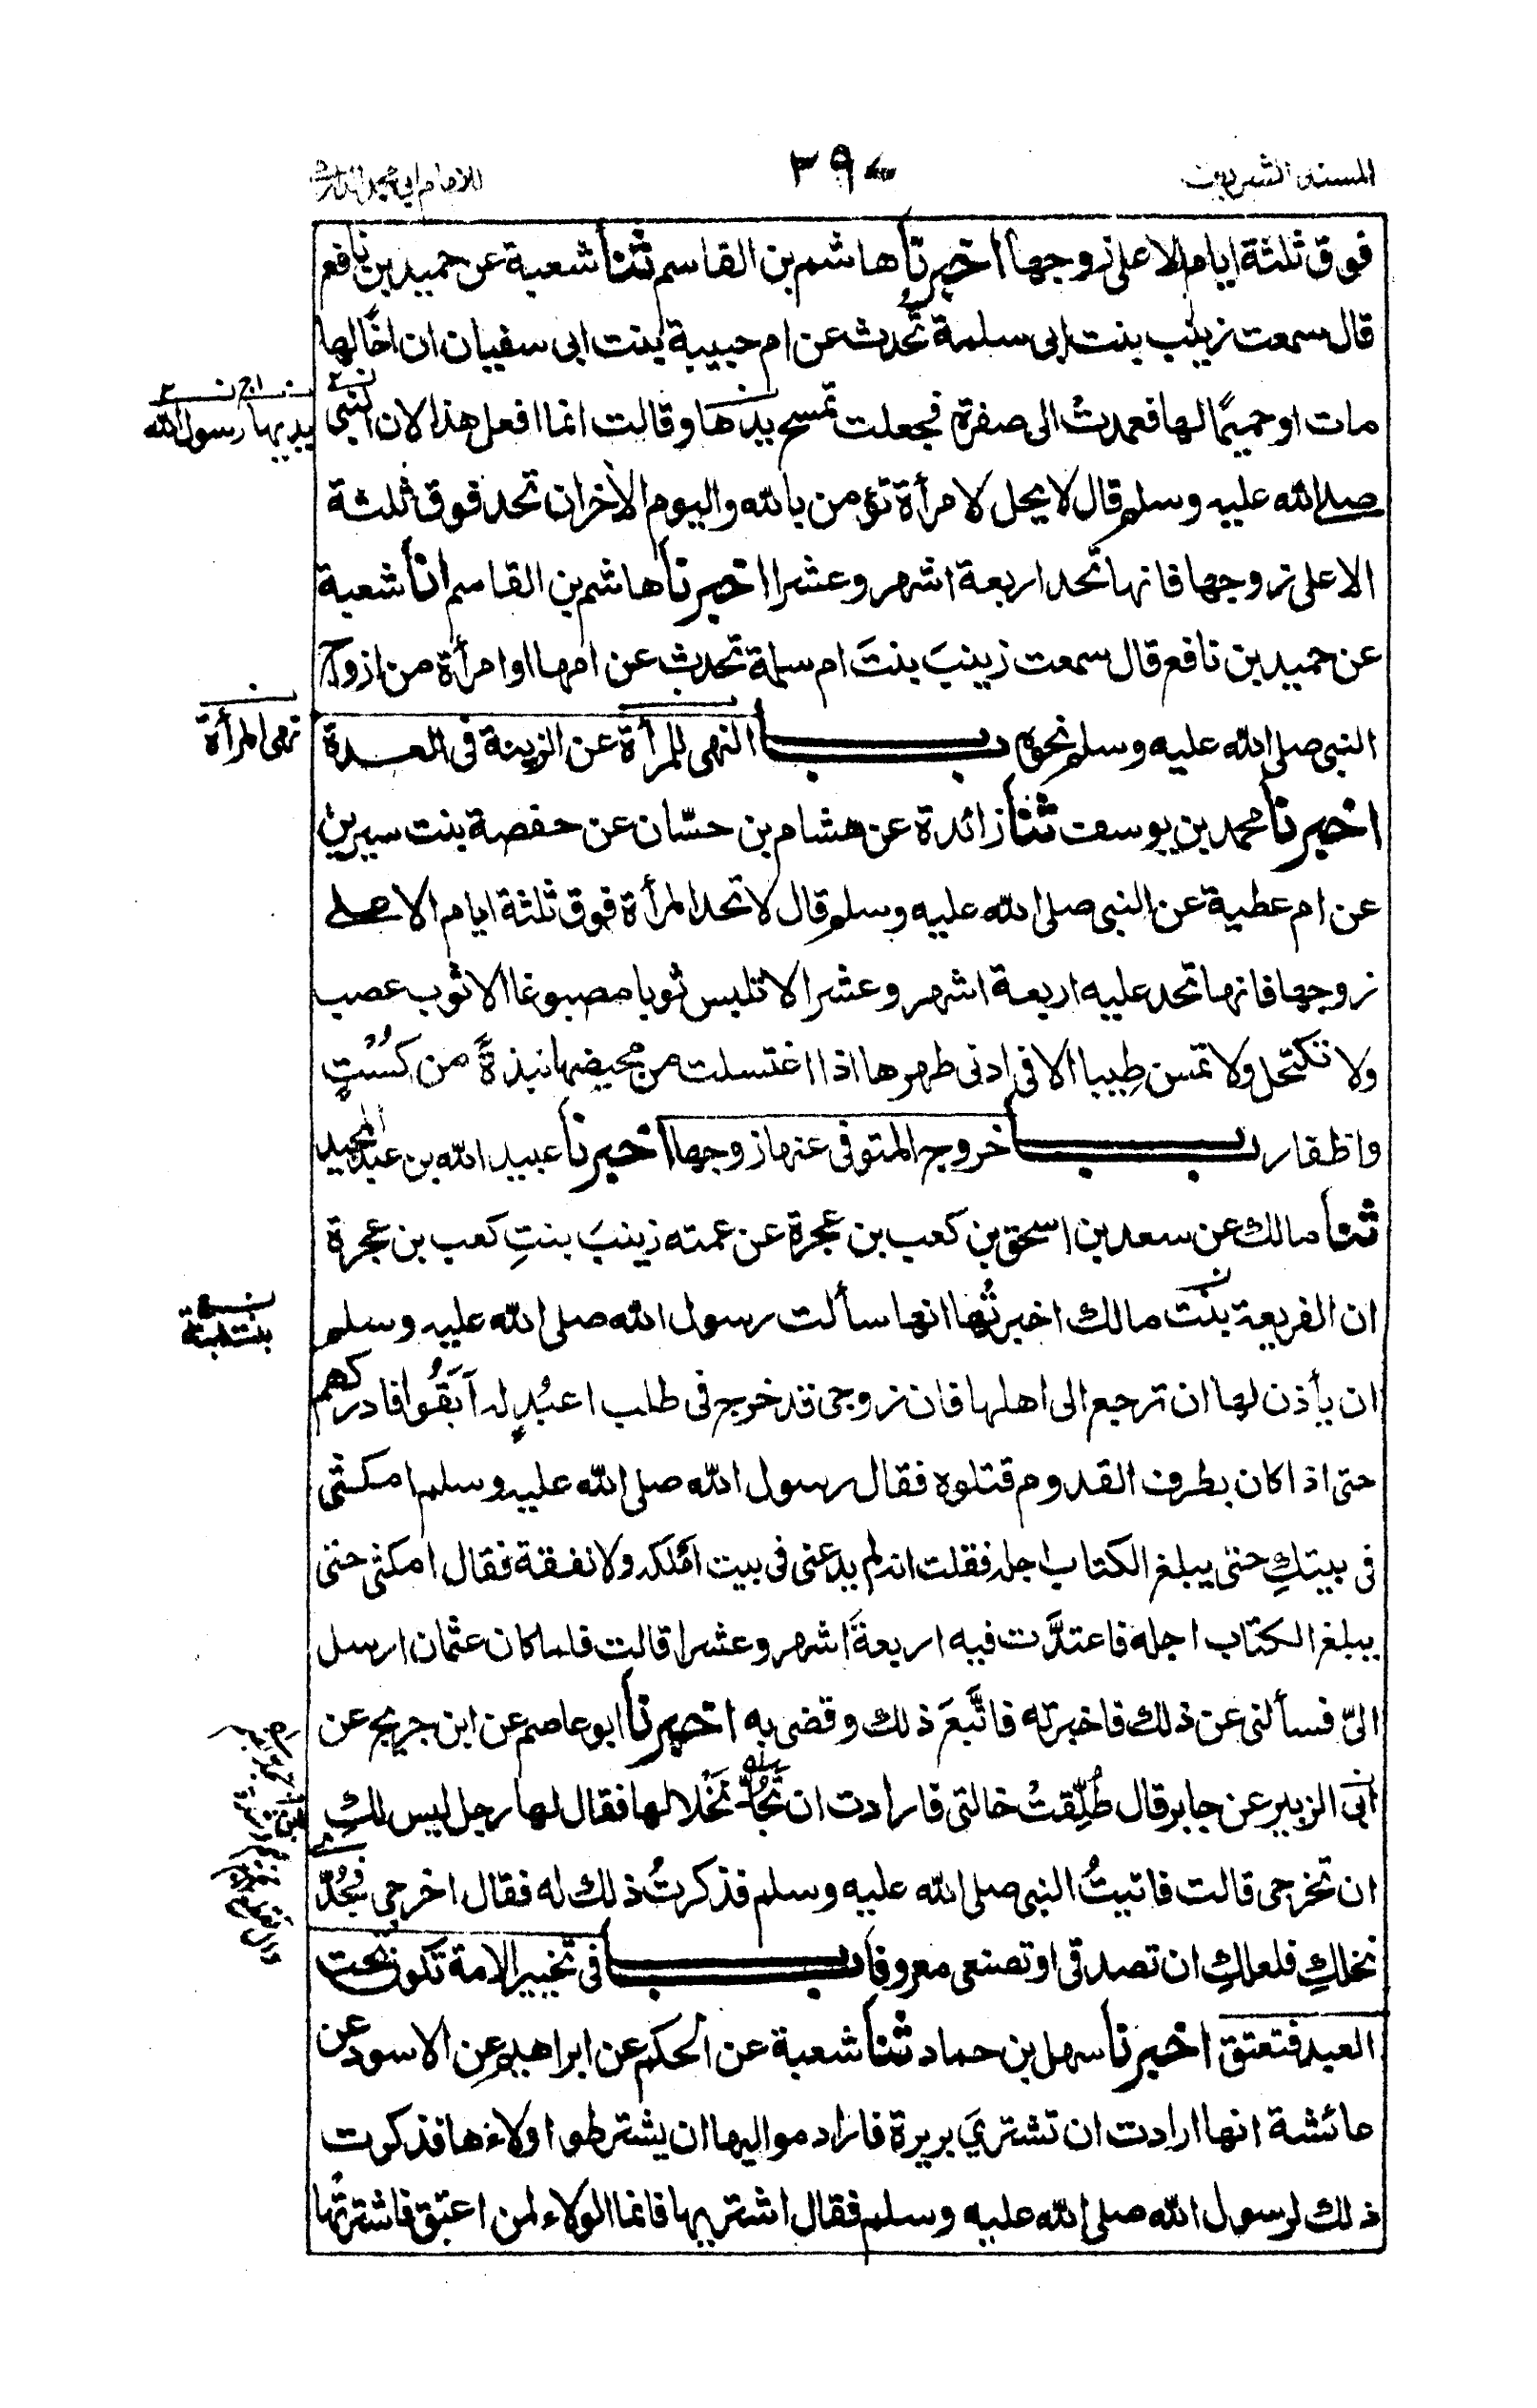 المسند الشريف
٢٩٠
للامام ابي محمد الدارمي
فوق ثلثة ايام الا على زوجها اخبرنا هاشم بن القاسم ثنا شعبة عن حميد بن نافع
قال سمعت زينب بنت ابى سلمة تُحدث عن ام حبيبة بنت ابى سفيان ان اخًا لها
مات او حميمًا لها فعمدتُ الى صفرة فجعلت تمسح يدها وقالت انما افعل هذا لان النبى
يديها رسول الله
صلى الله عليه وسلم قال لا يحل لامرأة تؤمن بالله واليوم الأخر ان تحد فوق ثلثة
الا على زوجها فانها تحد اربعة اشهر وعشرا اخبرنا هاشم بن القاسم انا شعبة
عن حميد بن نافع قال سمعت زينبَ بنتَ ام سلمة تحدث عن امها او امرأة من ازواج
النبى صلى الله عليه وسلم نحوه باب النهى للمرأة عن الزينة فى العدة
نهى المرأة
اخبرنا محمد بن يوسف ثنا زائدة عن هشام بن حسّان عن حفصة بنت سيرين
عن ام عطية عن النبى صلى الله عليه وسلم قال لا تحد المرأة فوق ثلثة ايام الا على
زوجها فانها تحد عليه اربعة اشهر وعشرا لا تلبس ثوبا مصبوغا الا ثوب عصب
ولا تكتحل ولا تمس طِيبا الا فى ادنى طهرها اذا اغتسلت من محيضها نبذةً من كُسْتٍ
واظفار باب خروج المتوفى عنها زوجها اخبرنا عبيد الله بن عبد المجيد
ثنا مالك عن سعد بن اسحق بن كعب بن عجرة عن عمته زينبَ بنتِ كعب بن عجرة
ان الفريعة بنت مالك اخبرتُها انها سألت رسول الله صلى الله عليه وسلم
ان يأذن لها ان ترجع الى اهلها فان زوجى قد خرج فى طلب اعبُدٍ له آبَقُوا فادركهم
حتى اذا كان بطرف القدوم قتلوه فقال رسول الله صلى الله عليه وسلم امكثى
فى بيتكِ حتى يبلغ الكتاب اجله فقلت انه لم يدعنى فى بيت املكه ولا نفقة فقال امكثى حتى
يبلغ الكتاب اجله فاعتدَّت فيه اربعةَ اشهر وعشرا قالت فلما كان عثمان ارسل
الىّ فسألنى عن ذلك فاخبرته فاتَّبعَ ذلك وقضى به اخبرنا ابو عاصم عن ابن جريج عن
ابى الزبير عن جابر قال طُلِّقتْ خالتى فارادت ان تَجُدَّ نَخْلا لها فقال لها رجل ليس لكِ
ان تخرجى قالت فاتيتُ النبى صلى الله عليه وسلم فذكرتُ ذلك له فقال اخرجى فجُدّى
نخلكِ فلعلكِ ان تصدقى او تصنعى معروفا باب فى تخيير الامة تكون تحت
العبد فتعتق اخبرنا سهل بن حماد ثنا شعبة عن الحكم عن ابراهيم عن الاسود عن
عائشة انها ارادت ان تشتريَ بريرة فاراد مواليها ان يشترطوا ولاءها فذكرت
ذلك لرسول الله صلى الله عليه وسلم فقال اشتريها فانما الولاء لمن اعتق فاشترتْها